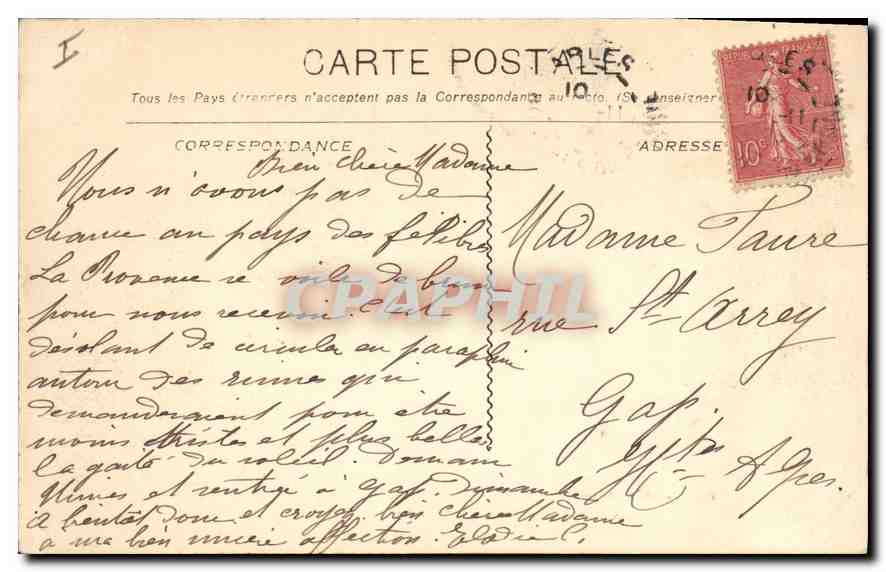 I
CARTE POSTALE
ARLES
10
Tous les Pays étrangers n'acceptent pas la Correspondance au recto. (Se renseigner
CORRESPONDANCE
ADRESSE
10c
Bien chère Madame
Nous n'avons pas de
chance au pays des félibre
La Provence se voile de brume
pour nous recevoir. C'est
désolant de circuler en parapluie
autour des ruines qui
demanderaient pour être
moins tristes et plus belles
la gaité du soleil. Demain
Nimes et rentrée à Gap. Dimanche
A bientôt donc et croyez bien chère Madame
à ma bien sincère affection. Elodie C.
Madame Faure
rue St Arrey
Gap.
Htes Alpes.
CPAPHIL